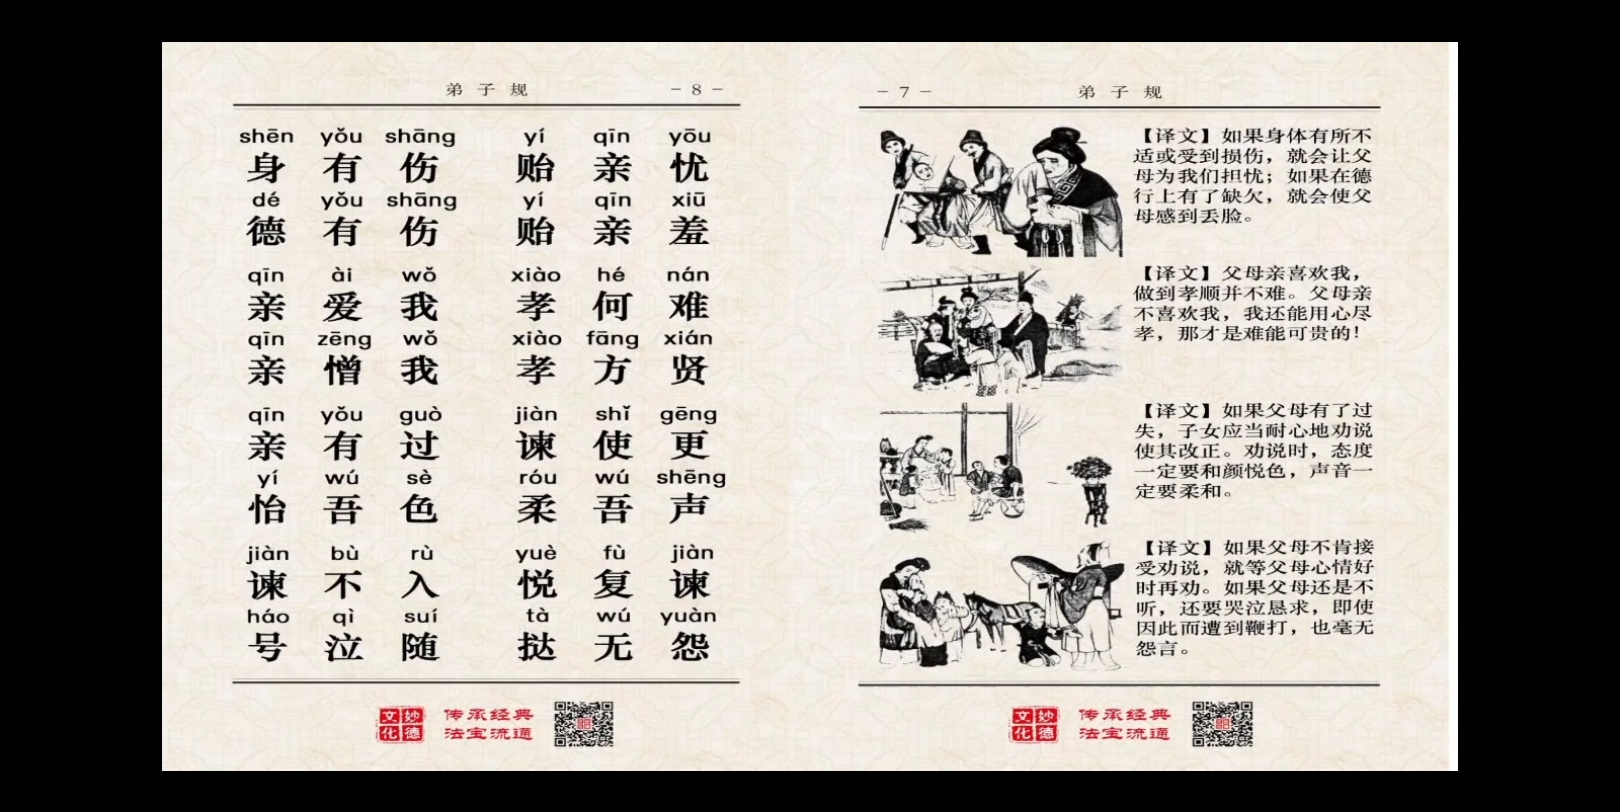 弟子规 -8-
shēn yǒu shāng yí qīn yōu
身有伤 贻亲忧
dé yǒu shāng yí qīn xiū
德有伤 贻亲羞
qīn ài wǒ xiào hé nán
亲爱我 孝何难
qīn zēng wǒ xiào fāng xián
亲憎我 孝方贤
qīn yǒu guò jiàn shǐ gēng
亲有过 谏使更
yí wú sè róu wú shēng
怡吾色 柔吾声
jiàn bù rù yuè fù jiàn
谏不入 悦复谏
háo qì suí tà wú yuàn
号泣随 挞无怨
文妙
化德
传承经典
法宝流通
-7- 弟子规
【译文】如果身体有所不
适或受到损伤，就会让父
母为我们担忧；如果在德
行上有了缺欠，就会使父
母感到丢脸。
【译文】父母亲喜欢我，
做到孝顺并不难。父母亲
不喜欢我，我还能用心尽
孝，那才是难能可贵的！
【译文】如果父母有了过
失，子女应当耐心地劝说
使其改正。劝说时，态度
一定要和颜悦色，声音一
定要柔和。
【译文】如果父母不肯接
受劝说，就等父母心情好
时再劝。如果父母还是不
听，还要哭泣恳求，即使
因此而遭到鞭打，也毫无
怨言。
文妙
化德
传承经典
法宝流通